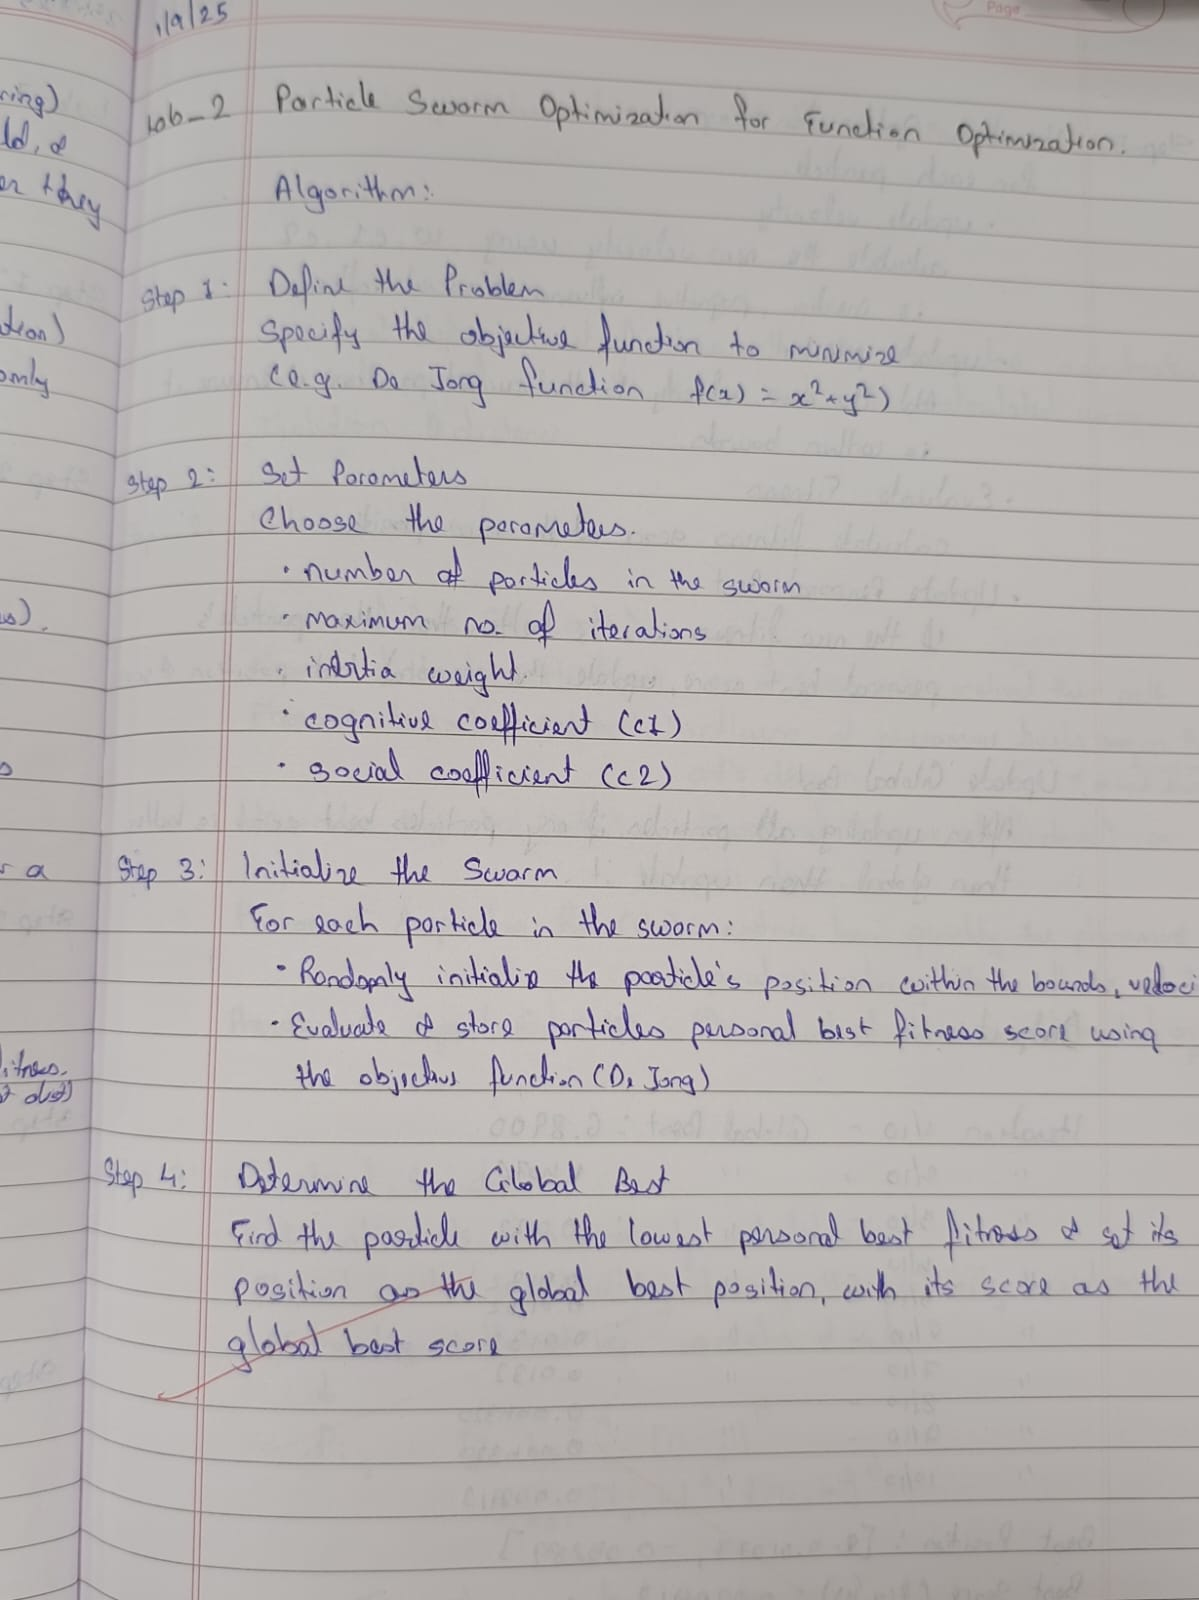 1/9/25
Page
ring)
ld, &
er they
tion)
omly
s).
r a
itness.
dist)
Lab-2 Particle Swarm Optimization for Function Optimization.
Algorithm:
Step 1: Define the Problem
Specify the objective function to minimize
(e.g. De Jong function f(x) = x²+y²)
Step 2: Set Parameters
Choose the parameters.
· number of particles in the swarm
· maximum no. of iterations
· inertia weight.
· cognitive coefficient (c1)
· social coefficient (c2)
Step 3: Initialize the Swarm
For each particle in the swarm:
· Randomly initialize the particle's position within the bounds, veloci
· Evaluate & store particles personal best fitness score using
the objective function (De Jong)
Step 4: Determine the Global Best
Find the particle with the lowest personal best fitness & set its
position as the global best position, with its score as the
global best score